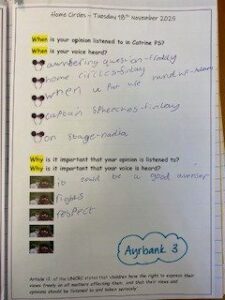 Home Circles – Tuesday 18th November 2025
When is your opinion listened to in Catrine PS?
When is your voice heard?
answering question-Freddy
home circles-finlay
when u put we hand up-
captain speeches-Finlay
on stage-nadia
Why is it important that your opinion is listened to?
Why is it important that your voice is heard?
it could be a good awenser
rights
respect
Ayrbank 3
Article 12 of the UNCRC states that children have the right to express their
views freely on all matters affecting them, and that their views and
opinions should be listened to and taken seriously'